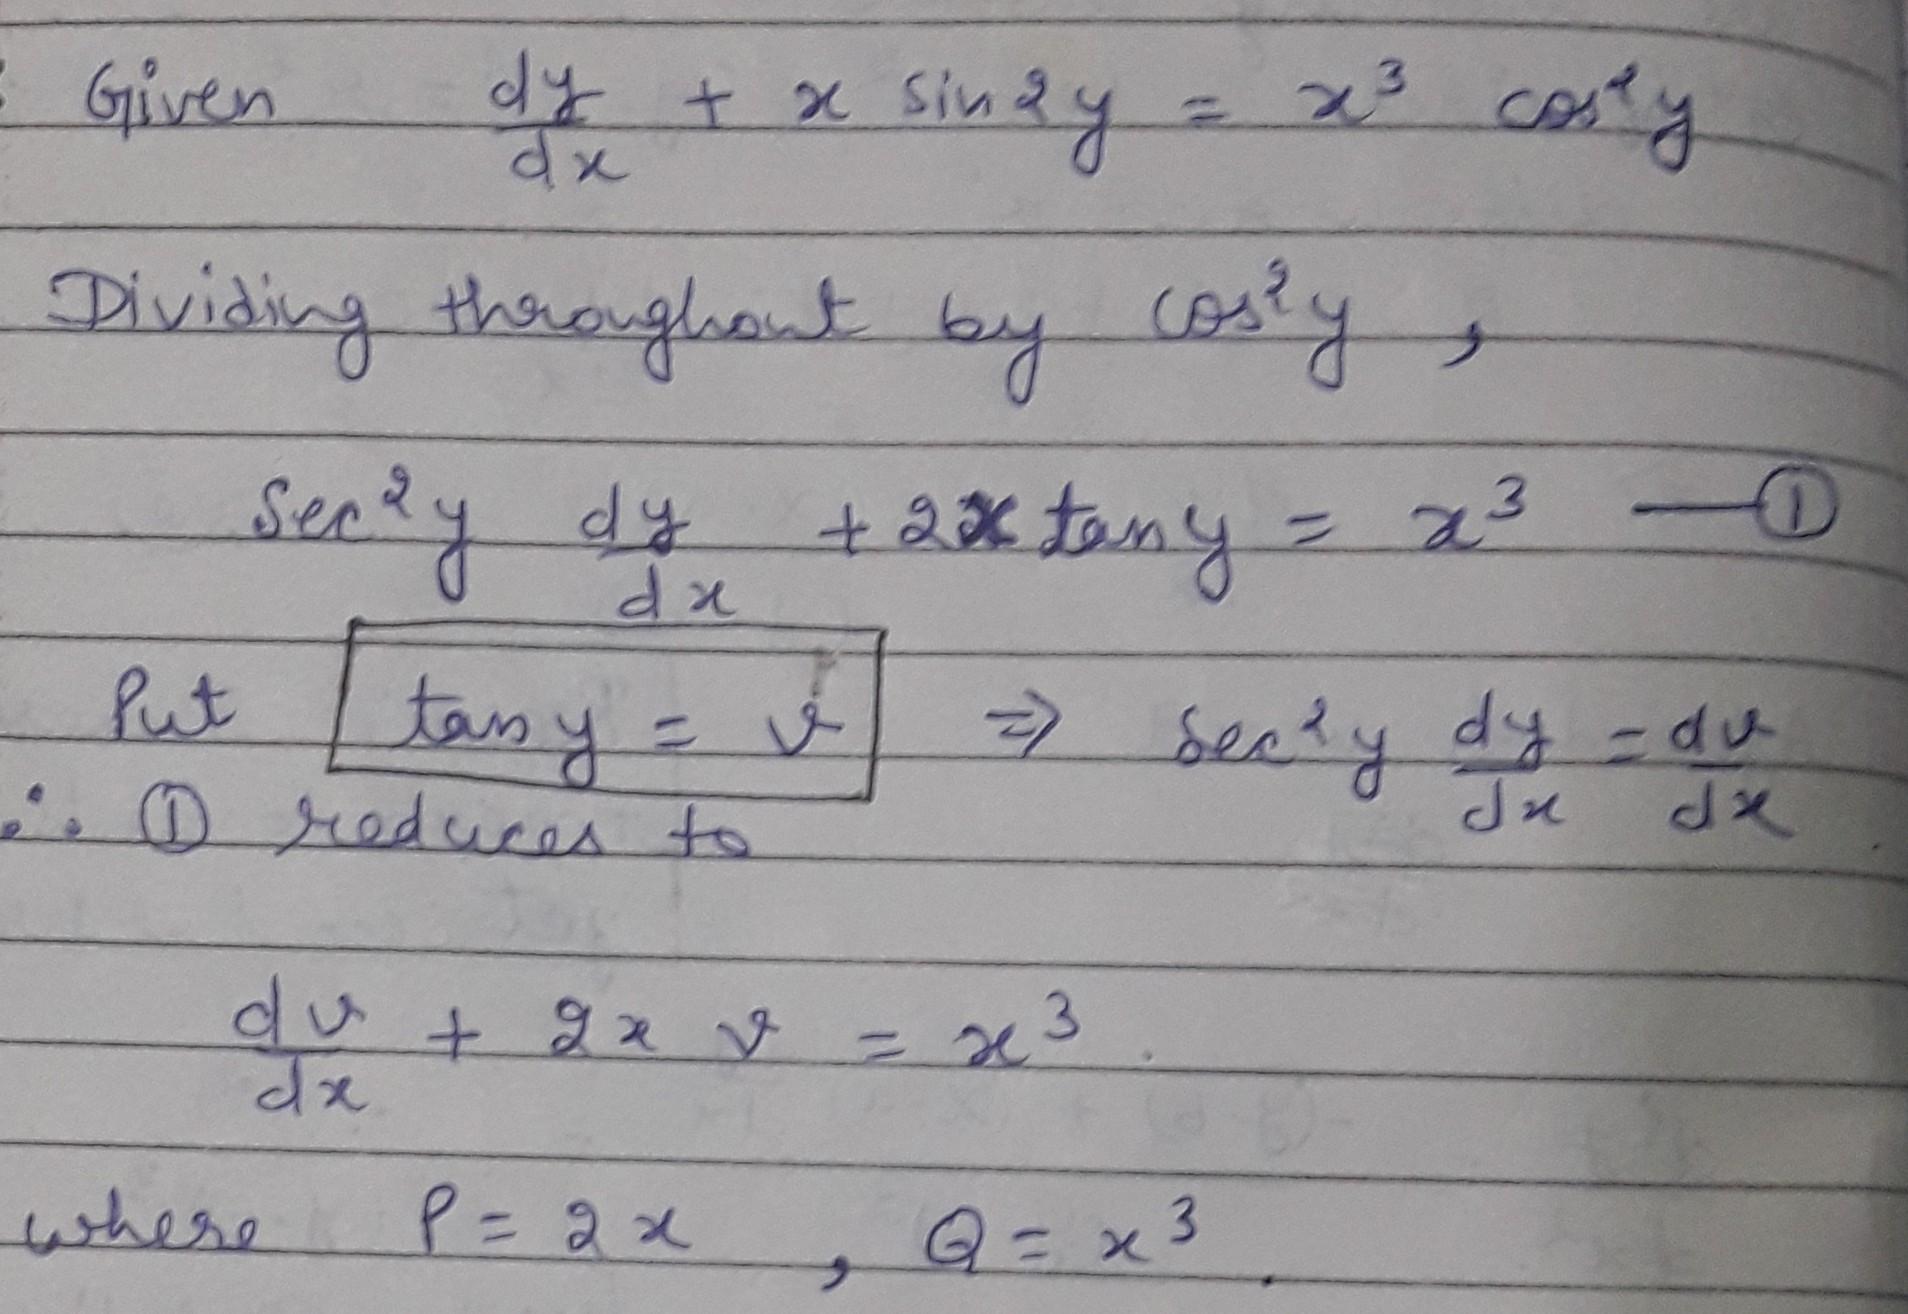 Given dy/dx + x sin2y = x³ cos²y
Dividing throughout by cos²y ,
Sec²y dy/dx + 2x tany = x³ —①
Put tany = v ⇒ Sec²y dy/dx = dv/dx
∴ ① reduces to
dv/dx + 2x v = x³.
where P = 2x , Q = x³.